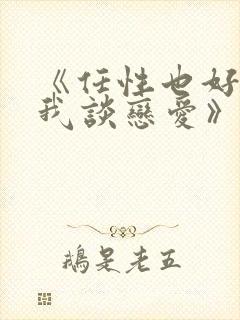 《任性也好
我談戀愛》
鵝是老五